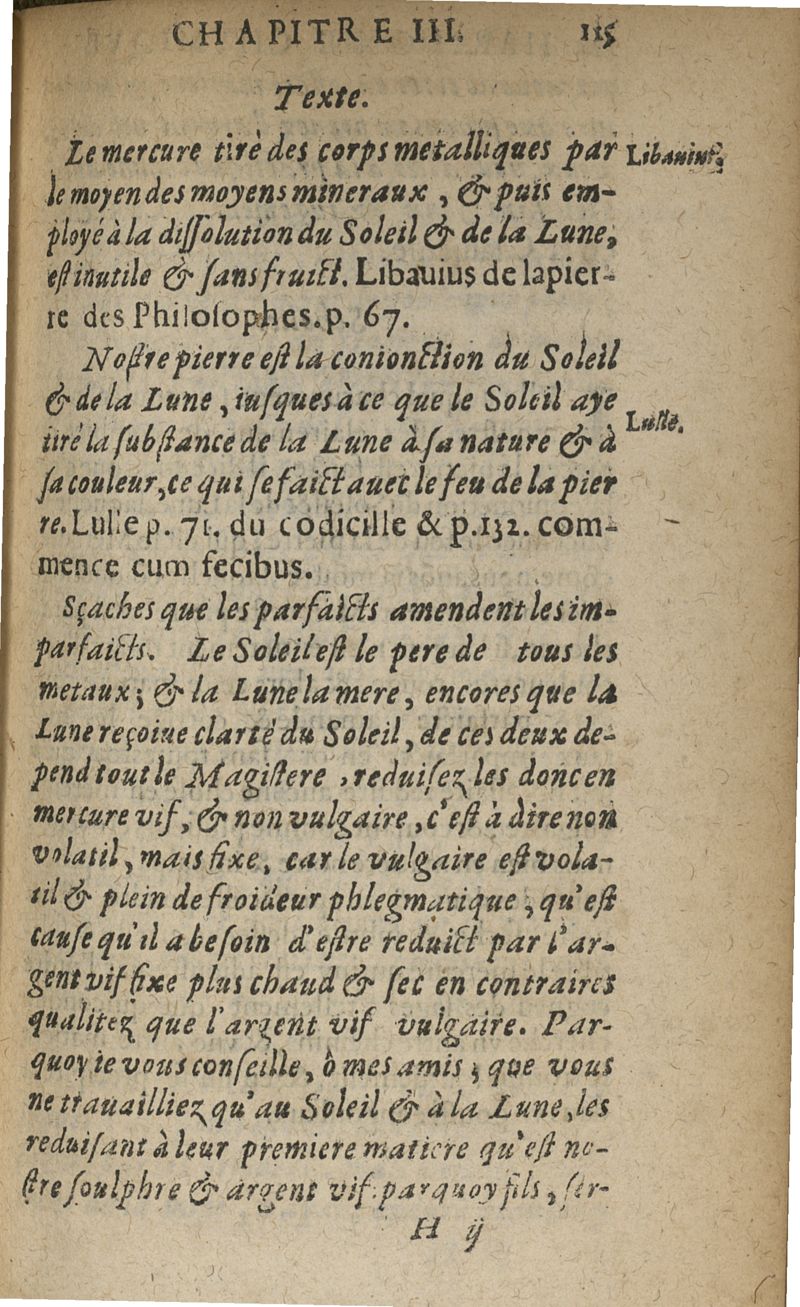 CHAPITRE III. 115
Texte.
Le mercure tirè des corps metalliques par
Libauius.
le moyen des moyens mineraux, & puis em-
ployé à la dissolution du Soleil & de la Lune,
est inutile & sans fruict. Libauius de la pier-
re des Philosophes. p. 67.
Nostre pierre est la conionction du Soleil
& de la Lune, iusques à ce que le Soleil aye
Lulle.
tiré la substance de la Lune à sa nature & à
sa couleur, ce qui se faict auec le feu de la pier
re. Lulle p. 71. du codicille & p. 132. com-
mence cum fecibus.
Sçaches que les parfaicts amendent les im-
parfaicts. Le Soleil est le pere de tous les
metaux; & la Lune la mere, encores que la
Lune reçoiue clarté du Soleil, de ces deux de-
pend tout le Magistere, reduisez les donc en
mercure vif, & non vulgaire, c'est à dire non
volatil, mais fixe, car le vulgaire est vola-
til & plein de froideur phlegmatique, qu'est
cause qu'il a besoin d'estre reduict par l'ar-
gent vif fixe plus chaud & sec en contraires
qualitez que l'argent vif vulgaire. Par-
quoy ie vous conseille, ò mes amis, que vous
ne trauailliez qu'au Soleil & à la Lune, les
reduisant à leur premiere matiere qu'est no-
stre soulphre & argent vif: parquoy fils, ser-
H ij